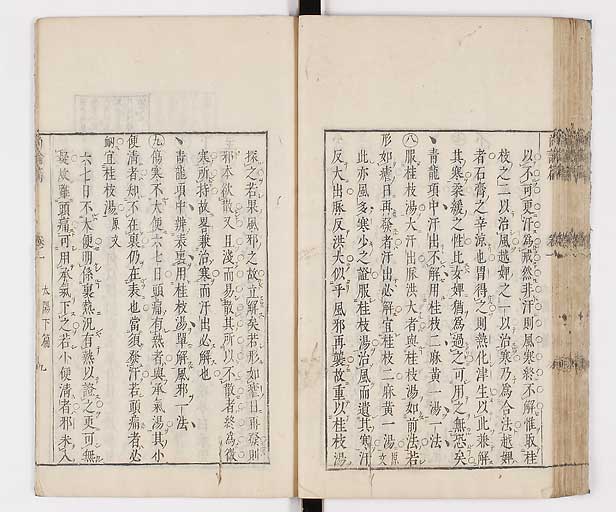 以不可更汗為戒然非汗則風寒終不解惟取桂
枝之二以治風越婢之一以治寒乃為合法越婢
者石膏之辛涼也胃得之則熱化津生以此兼解
其寒柔緩之性比女婢猶為過之可用之無恐矣
青龍項中汗出不解用桂枝二麻黄一湯一法
八服桂枝湯大汗出脈洪大者與桂枝湯如前法若
形如瘧日再發者汗出必解宜桂枝二麻黄一湯原文
此亦風多寒少之證服桂枝湯治風而遺其寒汗
反大出脈反洪大似乎風邪再襲故重以桂枝湯
探之若果風邪之故立解矣若形如瘧日再發則
邪本欲散又且淺而易散其所以不散者終為微
寒所持故畧兼治寒而汗出必解也
青龍項中辨表裏用桂枝湯單解風邪一法
九傷寒不大便六七日頭痛有熱者與承氣湯其小
便清者知不在裏仍在表也當須發汗若頭痛者必
衂宜桂枝湯原文
六七日不大便明係裏熱況有熱以證之更可無
疑故雖頭痛可用承氣下之若小便清者邪未入
卷一
太陽下篇
九